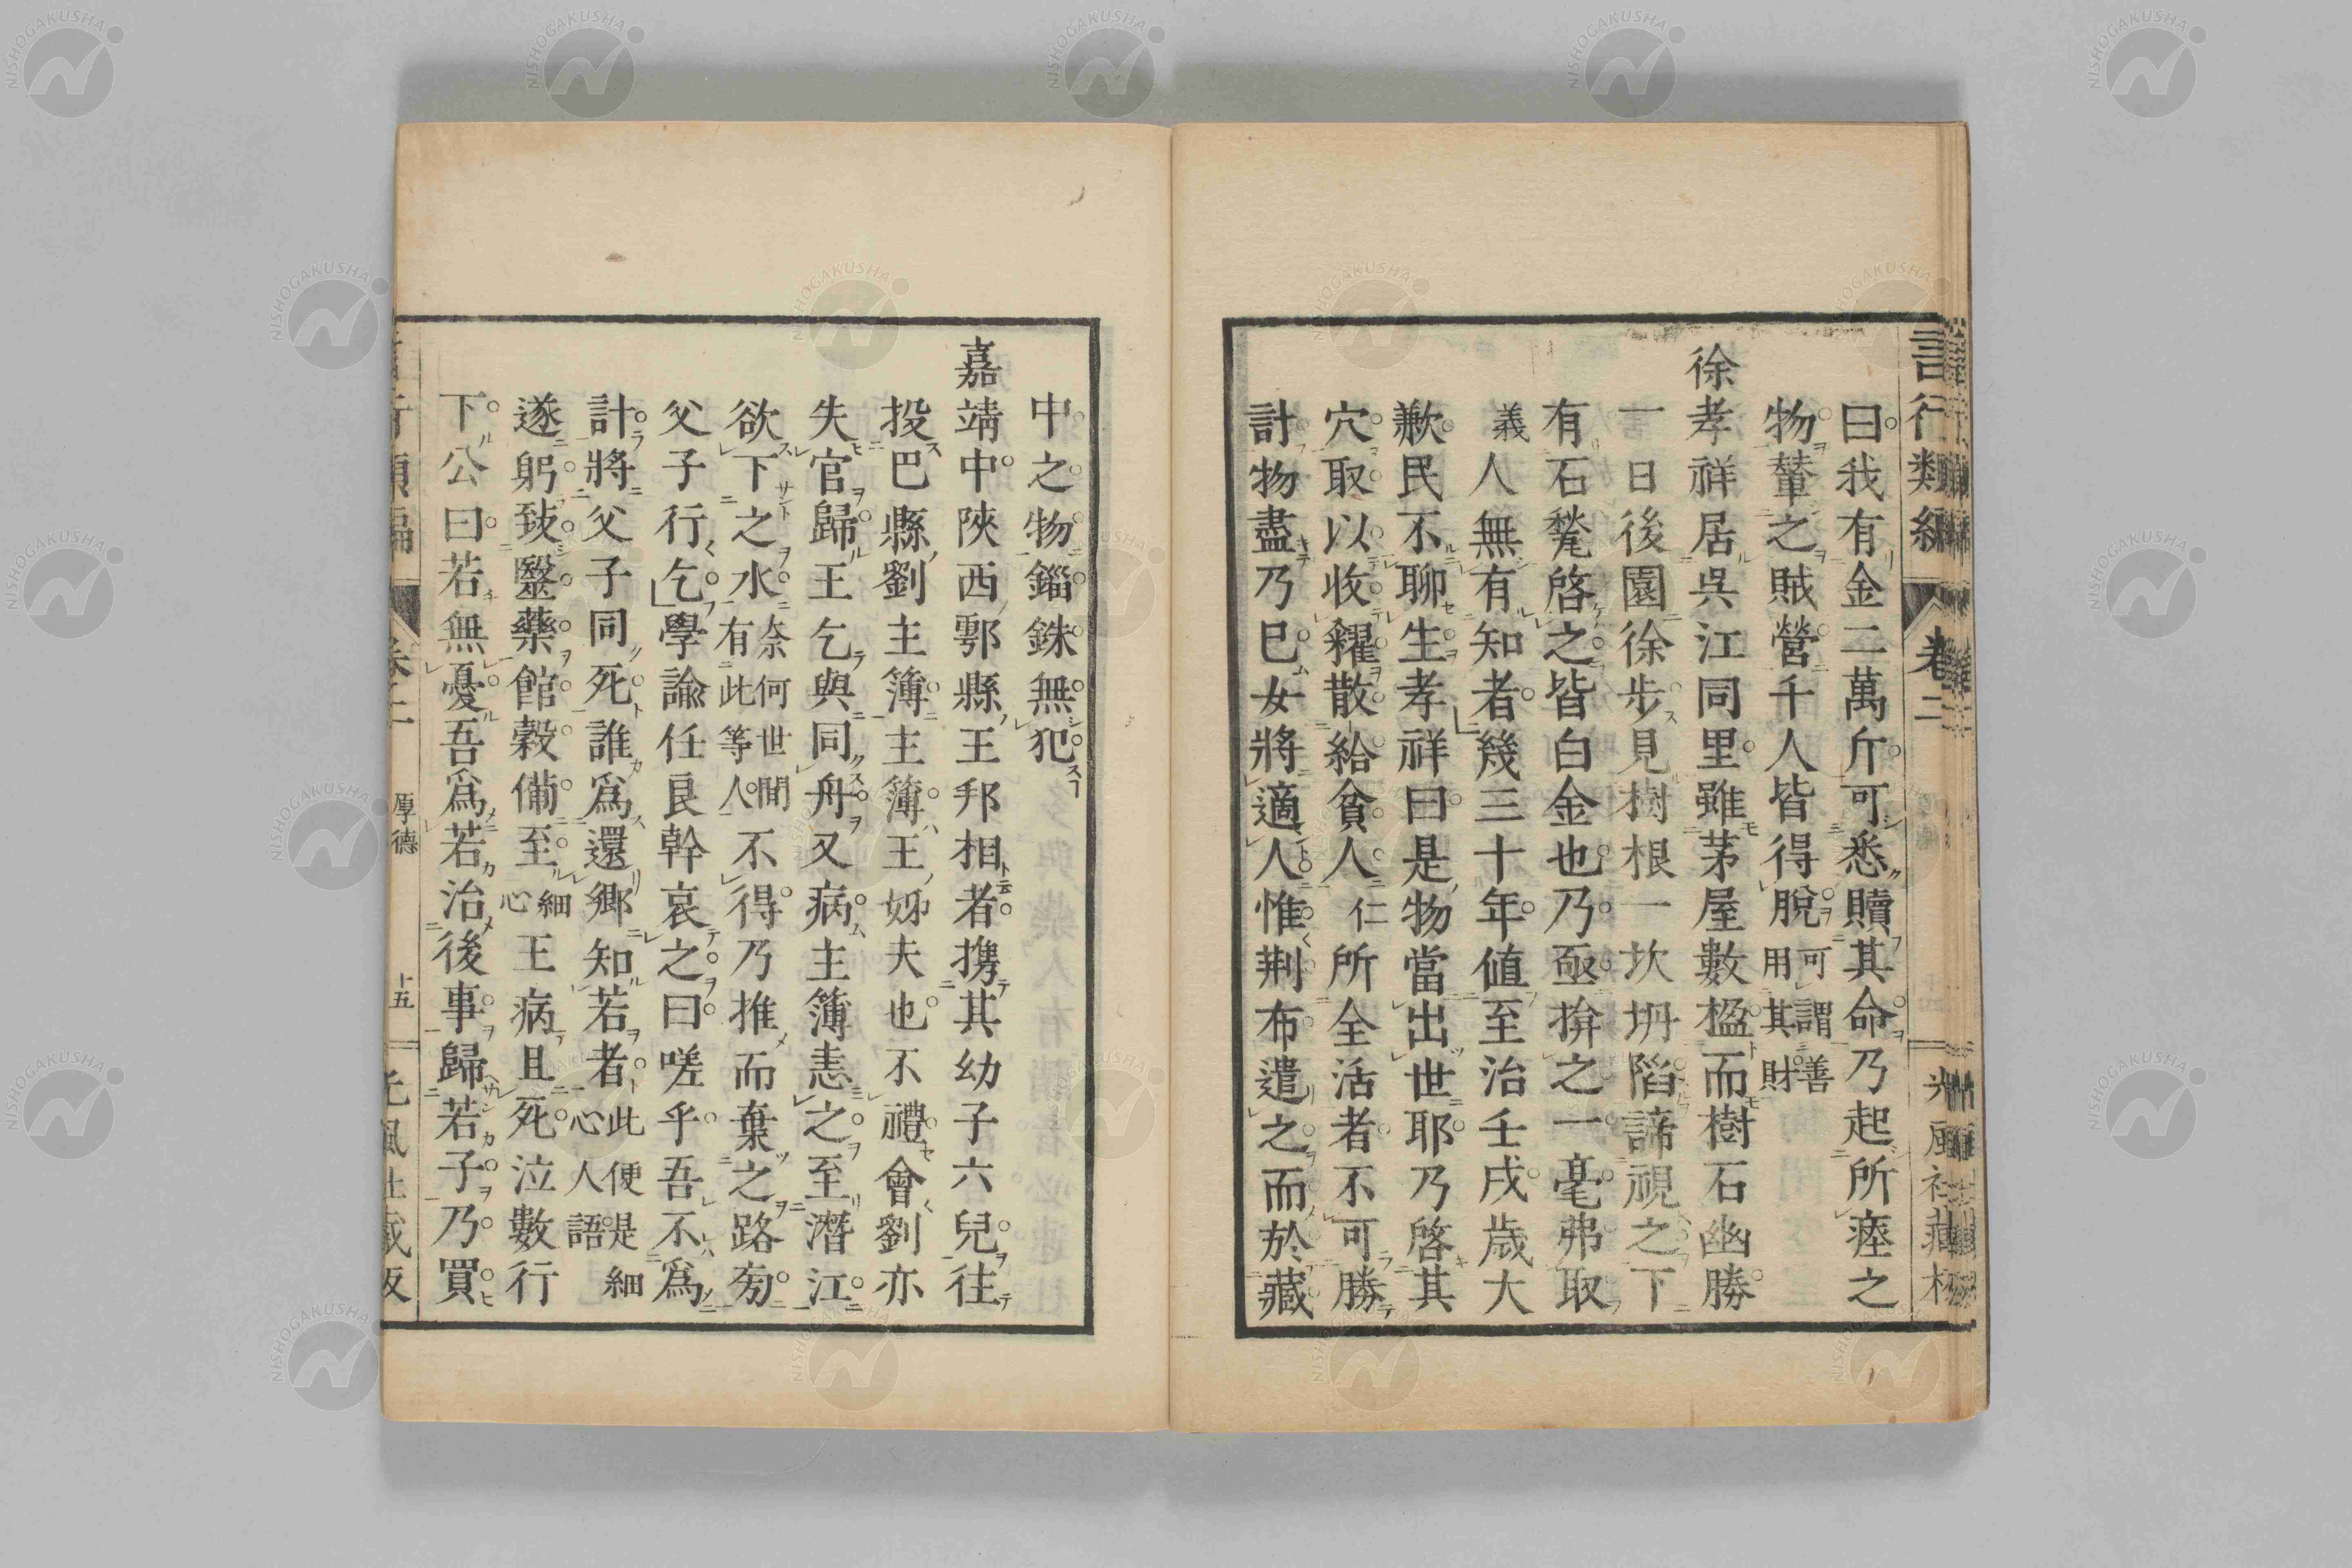 言行類編 卷二 光風社藏
曰我有金二萬斤可悉贖其命乃起所瘞之
物輦之賊營千人皆得脫可謂善用其財
徐孝祥居吳江同里雖茅屋數楹而樹石幽勝
一日後園徐步見樹根一坎坍陷諦視之下
有石甃啓之皆白金也乃亟揜之一毫弗取
義人無有知者幾三十年値至治壬戌歲大
歉民不聊生孝祥曰是物當出世耶乃啓其
穴取以收糴散給貧人仁所全活者不可勝
計物盡乃已女將適人惟荆布遣之而於藏
中之物錙銖無犯
嘉靖中陝西鄠縣王邦相者携其幼子六兒往
投巴縣劉主簿主簿王姊夫也不禮會劉亦
失官歸王乞與同舟又病主簿恚之至潛江
欲下之水奈何世間有此等人不得乃推而棄之路旁
父子行乞學諭任良幹哀之曰嗟乎吾不爲
計將父子同死誰爲還鄉知若者此便是細心人語
遂躬致醫藥館穀備至細心王病且死泣數行
下公曰若無憂吾爲若治後事歸若子乃買
厚德 十五